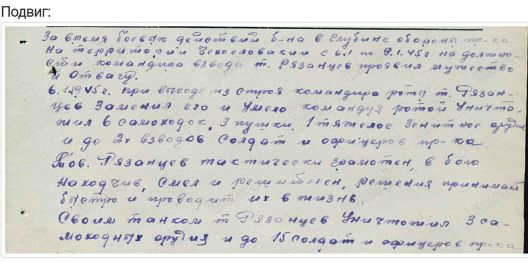 Подвиг:
За время боевых действий б-на в глубине обороны пр-ка
на территории Чехословакии с 6.1 по 9.1.45г на должно-
сти командира взвода т. Рязанцев проявил мужество
и отвагу.
6.1.1945г. при выходе из строя командира роты т. Рязан-
цев заменил его и умело командуя ротой уничто-
жил 6 самоходок, 3 пушки, 1 тяжелое зенитное орудие
и до 2х взводов солдат и офицеров пр-ка
Тов. Рязанцев тактически грамотен, в бою
находчив, смел и решителен, решения принимает
быстро и проводит их в жизнь.
Своим танком т. Рязанцев уничтожил 3 са-
моходных орудия и до 15 солдат и офицеров пр-ка